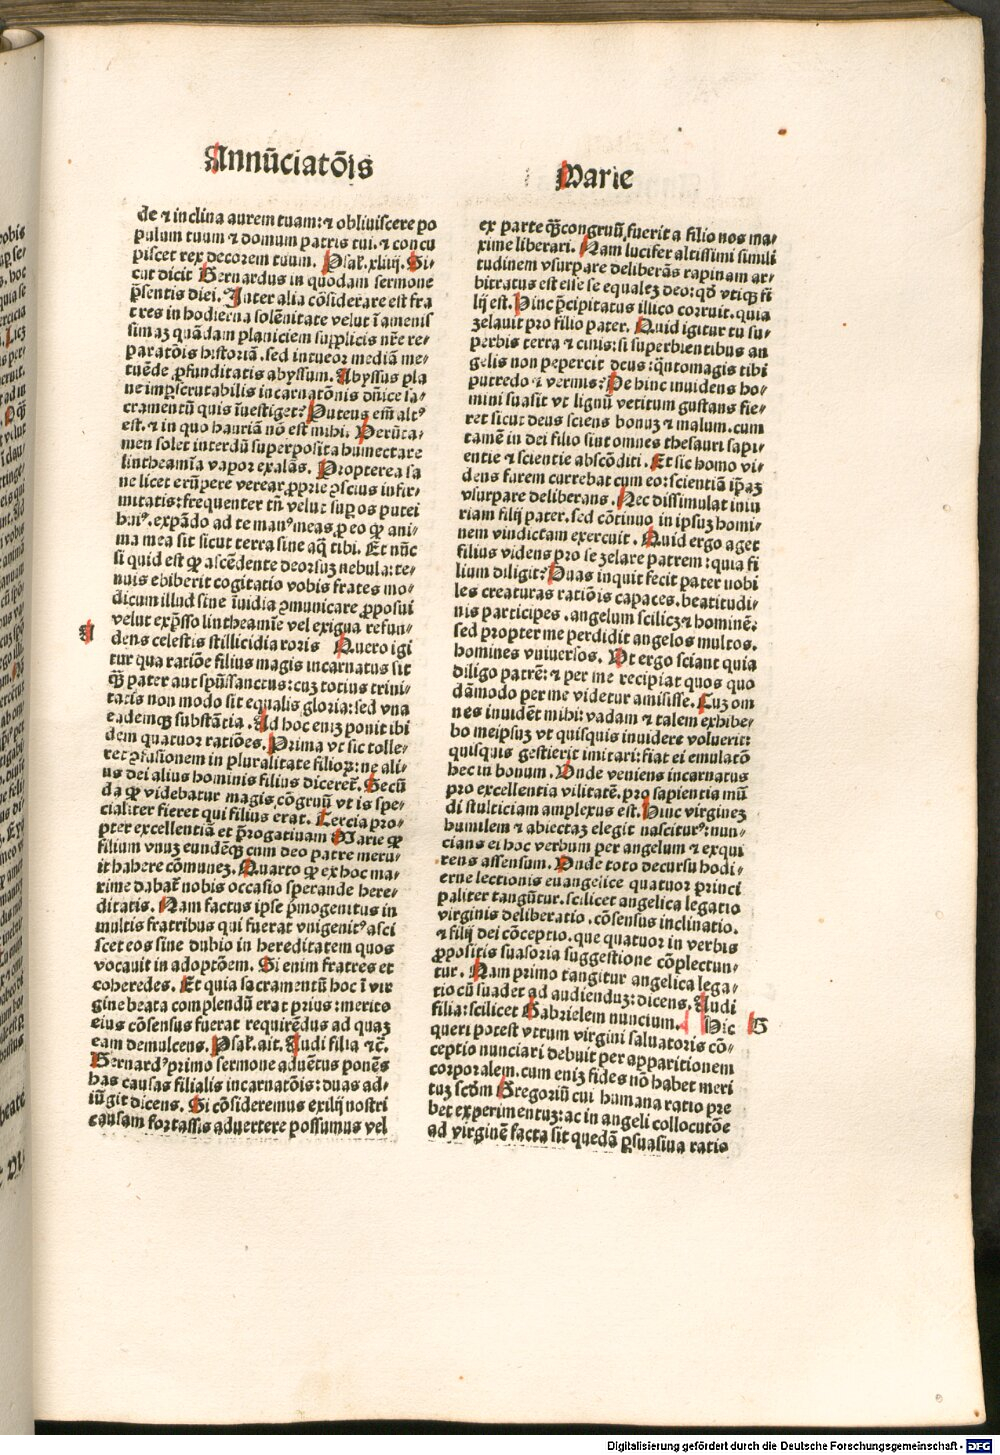 Annūciatōis
Marie
de ⁊ inclina aurem tuam: ⁊ obliuiscere po
pulum tuum ⁊ domum patris tui. ⁊ concu
piscet rex decorem tuum. Psaꝉ. xliiij. Si-
cut dicit Bernardus in quodam sermone
p̄sentis diei. Inter alia cōsiderare est fra
tres in hodierna solēnitate velut ī amenis
simaꝫ quādam planiciem supplicis nr̄e re-
paratōis historiā. sed intueor mediā me-
tuēde ꝓfunditatis abyssum. Abyssus pla
ne imꝑscrutabilis incarnatōnis dn̄ice sa-
cramentū quis īuestiget? Puteus em̄ altꝰ
est. ⁊ in quo hauriā nō est mihi. Verūta-
men solet interdū superposita humectare
linthеamīa vapor exalās. Propterea sa
ne licet erūpere verear ꝓprie ꝯscius infir-
mitatis: frequenter tn̄ velut suꝑ os putei
huiꝰ. expādo ad te manꝰ meas ꝓ eo ꝙ ani-
ma mea sit sicut terra sine aq̄ tibi. Et nūc
si quid est ꝙ ascēdente deorsuꝫ nebula: te-
nuis ebiberit cogitatio vobis frates mo-
dicum illud sine īuidia ꝯmunicare ꝓposui
velut exp̄sso lintheamīe vel exigua refun-
dens celestis stillicidia roris Quero igi
tur qua ratiōe filius magis incarnatus sit
q̄ꝫ pater aut spūssanctus: cuꝫ totius trini-
tatis non modo sit equalis gloria: sed vna
eademqꝫ substātia. Ad hoc eniꝫ ponit ibi
dem quatuor ratiōes. Prima vt sic tolle-
ret ꝯfusionem in pluralitate filioꝝ: ne ali-
us dei alius hominis filius diceret̄. Secū
da ꝙ videbatur magis cōgruū vt is spe-
cialiter fieret qui filius erat. Tercia pro-
pter excellentiā et p̄rogatiuam Marie ꝙ
filium vnuꝫ eundēqꝫ cum deo patre meru-
it habere cōmuneꝫ. Quarto ꝙ ex hoc ma-
xime dabat̄ nobis occasio sperande here-
ditatis. Nam factus ipse p̄mogenitus in
multis fratribus qui fuerat vnigenitꝰ asci
scet eos sine dubio in hereditatem quos
vocauit in adoptōem. Si enim fratres et
coheredes. Et quia sacramentū hoc ī vir
gine beata complendū erat prius: merito
eius cōsensus fuerat requirēdus ad quaꝫ
eam demulcens. Psaꝉ. ait. Audi filia ⁊c̄.
Bernardꝰ primo sermone aduētus ponēs
has causas filialis incarnatōis: duas ad-
iūgit dicens. Si cōsideremus exilij nostri
causam fortassis aduertere possumus vel
ex parte q̄ꝫ congruū fuerit a filio nos ma-
xime liberari. Nam lucifer altissimi simili
tudinem vsurpare deliberās rapinam ar-
bitratus est esse se equaleꝫ deo: qd̄ vtiqꝫ fi
lij est. Hinc p̄cipitatus illico corruit. quia
zelauit pro filio pater. Quid igitur tu su-
perbis terra ⁊ cinis: si superbientibus an
gelis non pepercit deus: q̄ntomagis tibi
putredo ⁊ vermis? De hinc inuidens ho-
mini suasit vt lignū vetitum gustans fie-
ret sicut deus sciens bonuꝫ ⁊ malum. cum
tamē in dei filio sint omnes thesauri sapi-
entie ⁊ scientie abscōditi. Et sic homo vi-
dens furem currebat cum eo: scientiā ip̄aꝫ
vsurpare deliberans. Nec dissimulat iniu
riam filij pater. sed cōtinuo in ipsuꝫ homi-
nem vindictam exercuit. Quid ergo aget
filius videns pro se zelare patrem: quia fi
lium diligit? Duas inquit fecit pater nobi
les creaturas ratiōis capaces. beatitudi-
nis participes. angelum sciliczꝫ ⁊ hominē:
sed propter me perdidit angelos multos.
homines vniuersos. Vt ergo sciant quia
diligo patrē: ⁊ per me recipiat quos quo
dāmodo per me videtur amisisse. Cuꝫ om
nes inuidēt mihi: vadam ⁊ talem exhibe-
bo meipsuꝫ vt quisquis inuidere voluerit:
quisquis gestierit imitari: fiat ei emulatō
hec in bonum. Vnde veniens incarnatus
pro excellentia vilitatē. pro sapientia mū
di stulticiam amplexus est. Hinc virgineꝫ
humilem ⁊ abiectaꝫ elegit nasciturꝰ: nun-
cians ei hoc verbum per angelum ⁊ exqui
rens assensum. Unde toto decursu hodi-
erne lectionis euangelice quatuor princi
paliter tangūtur. scilicet angelica legatio
virginis deliberatio. cōsensus inclinatio.
⁊ filij dei cōceptio. que quatuor in verbis
ꝓpositis suasoria suggestione cōplectun-
tur. Nam primo tangitur angelica lega-
tio cū suadet ad audienduꝫ: dicens. Audi
filia: scilicet Gabrielem nuncium. Hic
B
queri potest vtrum virgini saluatoris cō-
ceptio nunciari debuit per apparitionem
corporalem. cum eniꝫ fides nō habet meri
tuꝫ scd̄m Gregoriū cui humana ratio pre
bet experimentuꝫ: ac in angeli collocutōe
ad virginē facta sit quedā ꝑsuasiua ratio
Digitalisierung gefördert durch die Deutsche Forschungsgemeinschaft - DFG